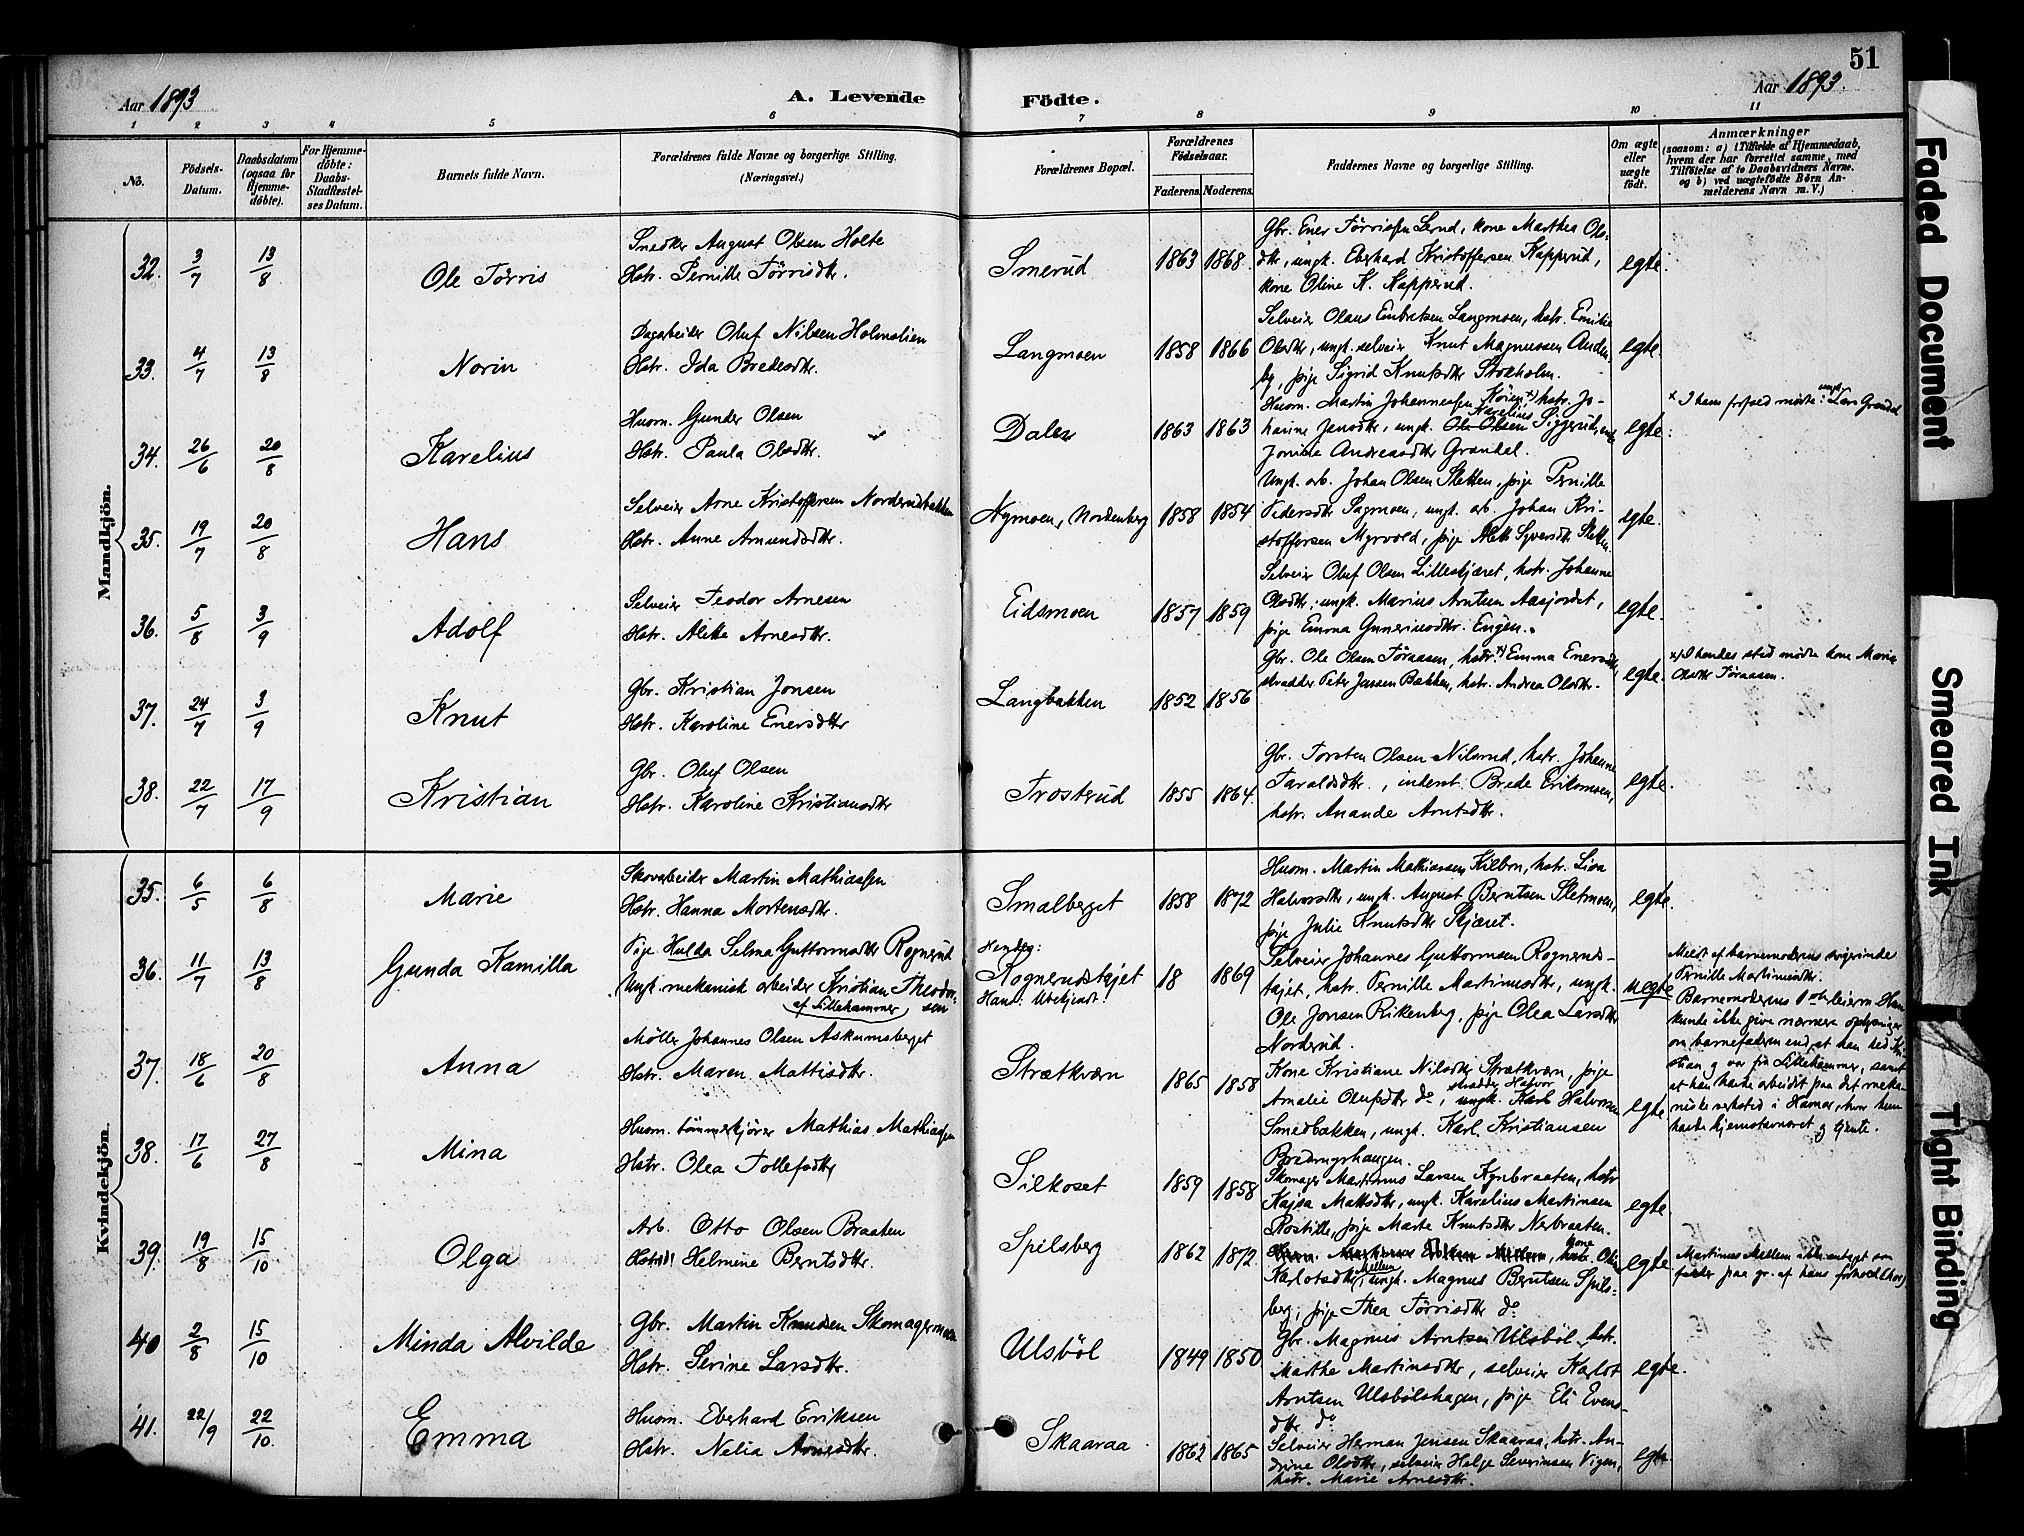 51
Aar 1893
A. Levende
Födte.
Aar 1893.
1 2 3 4 5 6 7 8 9 10 11
No.
Födsels-
Datum.
Daabsdatum
(ogsaa for
Hjemme-
döbte).
For Hjemme-
döbte:
Daabs-
Stadfæstel-
ses Datum.
Barnets fulde Navn.
Forældrenes fulde Navne og borgerlige Stilling.
(Næringsvei.)
Forældrenes Bopæl.
Forældrenes
Födselsaar.
Faderens.
Moderens.
Faddernes Navne og borgerlige Stilling.
Om ægte
eller
uægte
födt.
Anmærkninger
(saasom: a) i Tilfælde af Hjemmedaab,
hvem der har forrettet samme, med
Tilföielse af to Daabsvidners Navne,
og b) ved uægtefödte Börn An-
melderens Navn m. V.)
Mandkjön.
32. 3/7 13/8 Ole Tørris
Snedker August Olsen Holte
Hstr. Pernille Tørrisdtr.
Smerud 1863 1868.
Gbr. Ener Tørrissen Lerud, kone Marthea Ols-
dtr, ungk. Eberhard Kristoffersen Kapperud,
kone Oline K. Kapperud.
egte.
33. 4/7 13/8 Norin
Dagarbeider Oluf Nilsen Holmelien
Hstr. Ida Bredesdtr.
Langmoen 1858 1866
Selveier Olaus Embretsen Langmoen, hstr. Emilie
Olsdtr, ungk. selveier Knut Magnussen Anden
by, pige Sigrid Knutsdtr Stokholm.
egte.
34. 26/6 20/8 Karelius
Husm. Gunder Olsen
Hstr. Paula Olsdtr.
Dalen 1863 1863
Husm. Martin Johannessen x) hstr. Jo-
Karelius
hanne Jensdtr, ungk. Ole Olsen Siggerud,
Jonine Andreasdtr Grøndal.
egte.
x I hans forfald mødte: ungk. Lars Grøndal
35. 19/7 20/8 Hans
Selveier Arne Kristoffersen Norderudbakken
Hstr. Anne Amundsdtr.
Nymoen, Nordenberg 1858 1854
Ungk. arb. Johan Olsen Sletten, pige Pernille
Pedersdtr Sagmoen, ungk. arb. Johan Kri-
stoffersen Myrvold, pige Alette Syversdtr Sletten.
egte.
36. 5/8 3/9 Adolf
Selveier Teodor Arnesen
Hstr. Alette Arnesdtr.
Eidsmoen 1857 1859
Selveier Oluf Olsen Lillekjæret, hstr. Johanne
Olsdtr, ungk. Marius Arntsen Aasjordet,
pige Emma Guneriusdtr. Engen.
egte.
37. 24/7 3/9 Knut
Gbr. Kristian Jonsen
Hstr. Karoline Enersdtr
Langbakken 1852 1856
Gbr. Ole Olsen Føraasen, hstr. x) Emma Enersdtr,
skradder Peter Jensen Bakken, hstr. Andrea Olsdtr.
egte.
x) I hendes sted mødte kone Maria
Olsdtr Føraasen.
38. 22/7 17/9 Kristian
Gbr. Oluf Olsen
Hstr. Karoline Kristiansdtr
Trosterud 1855 1864.
Gbr. Torsten Olsen Nilsrud, hstr. Johanne
Taraldsdtr., inderst Brede Eriksmoen,
hstr. Anande Arntsdtr.
egte.
Kvindekjön.
35. 6/5 6/8 Marie
Skovarbeider Martin Mathiassen
Hstr. Hanna Mortensdtr.
Smalberget 1858 1872
Husm. Martin Mathiassen Kilbon, hstr. Lisa
Halvorsdtr, ungk. August Berntsen Sletmoen,
pige Julie Knutsdtr Skjæret.
egte.
36. 11/7 13/8 Gunda Kamilla
Pige Hulda Selma Guttormsdtr Rognerud
Ungk. mekanisk arbeider Kristian Theodor-
af Lillehammer sen
Hendes:
Rognerudstajet
Hans: Ubekjendt!
18 1869
Selveier Johannes Guttormsen Rogneruds-
tajet, hstr. Pernille Martinusdtr, ungk.
Ole Jonsen Rikenberg, pige Olea Larsdtr
Norderud.
uegte
Meldt af barnemoderens svigerinde
Pernille Martinusdtr.
Barnemoderens 1ste leierm. Hun
kunde ikke give nærmere oplysninger
om barnefaderen end at han hed Kri-
stian og var fra Lillehammer, samt
at han havde arbeidet paa det meka-
niske verksted i Hamar, hvor hun
havde hjemstavnsret og tjente.
37. 18/6 20/8 Anna
Møller Johannes Olsen Askumsberget
Hstr. Maren Mattisdtr.
Strætkværn 1865 1858
Kone Kristiane Nilsdtr Strætkværn, pige
Amalie Olufsdtr do, skradder Halvor ungk. Karl Halvorsen
Smedbakken, ungk. Karl Kristiansen
Bredrugshaugen.
egte
38. 17/6 27/8 Mina
Husm. tømmerkjører Mathias Mathiassen
Hstr. Olea Tollefsdtr
Silkoset 1859 1858
Skomager Martinus Larsen Kynbraaten, hstr
Kajsa Mattsdtr, ungk. Karelius Martinsen
Rostille, pige Marte Knutsdtr Nerbraaten.
egte.
39. 19/8 15/10 Olga
Arb. Otto Olsen Braaten
Hstr. Helmine Berntsdtr.
Spilsberg 1862 1872.
kone
Karlotsdtr Mellem, ungk. Magnus Berntsen Spils-
berg, pige Thea Tørrisdtr do
egte
Martinus Mellem ikke antaget som
fadder paa gr. af hans forhold
40 2/8 15/10 Minda Alvilde
Gbr. Martin Knudsen Skomagermoen
Hstr. Serine Larsdtr.
Ulsböl 1849 1850
Gbr. Magnus Arntsen Ulsböl, hstr.
Marthe Martinsdtr, selveier Karlot
Arntsen Ulsbölshagen, pige Eli Evens-
dtr do
egte.
41. 22/9 22/10. Emma
Husm. Eberhard Eriksen
Hstr. Nelia Arnesdtr.
Skaaraa 1862 1865
Selveier Herman Jensen Skaaraa, hstr. An-
drine Olsdtr, selveier Helge Severinsen Vigen,
hstr. Marie Arnesdtr.
egte
Faded Document
Smeared Ink
Tight Binding